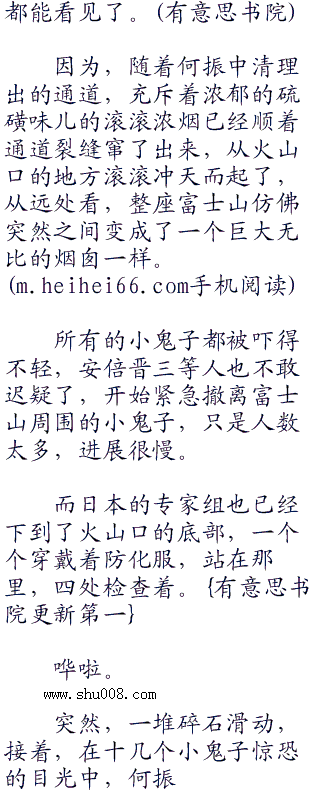 都能看见了。(有意思书院)
因为，随着何振中清理
出的通道，充斥着浓郁的硫
磺味儿的滚滚浓烟已经顺着
通道裂缝窜了出来，从火山
口的地方滚滚冲天而起了，
从远处看，整座富士山仿佛
突然之间变成了一个巨大无
比的烟囱一样。
(m.heihei66.com手机阅读)
所有的小鬼子都被吓得
不轻，安倍晋三等人也不敢
迟疑了，开始紧急撤离富士
山周围的小鬼子，只是人数
太多，进展很慢。
而日本的专家组也已经
下到了火山口的底部，一个
个穿戴着防化服，站在那
里，四处检查着。{有意思书
院更新第一}
哗啦。
www.shu008.com
突然，一堆碎石滑动，
接着，在十几个小鬼子惊恐
的目光中，何振